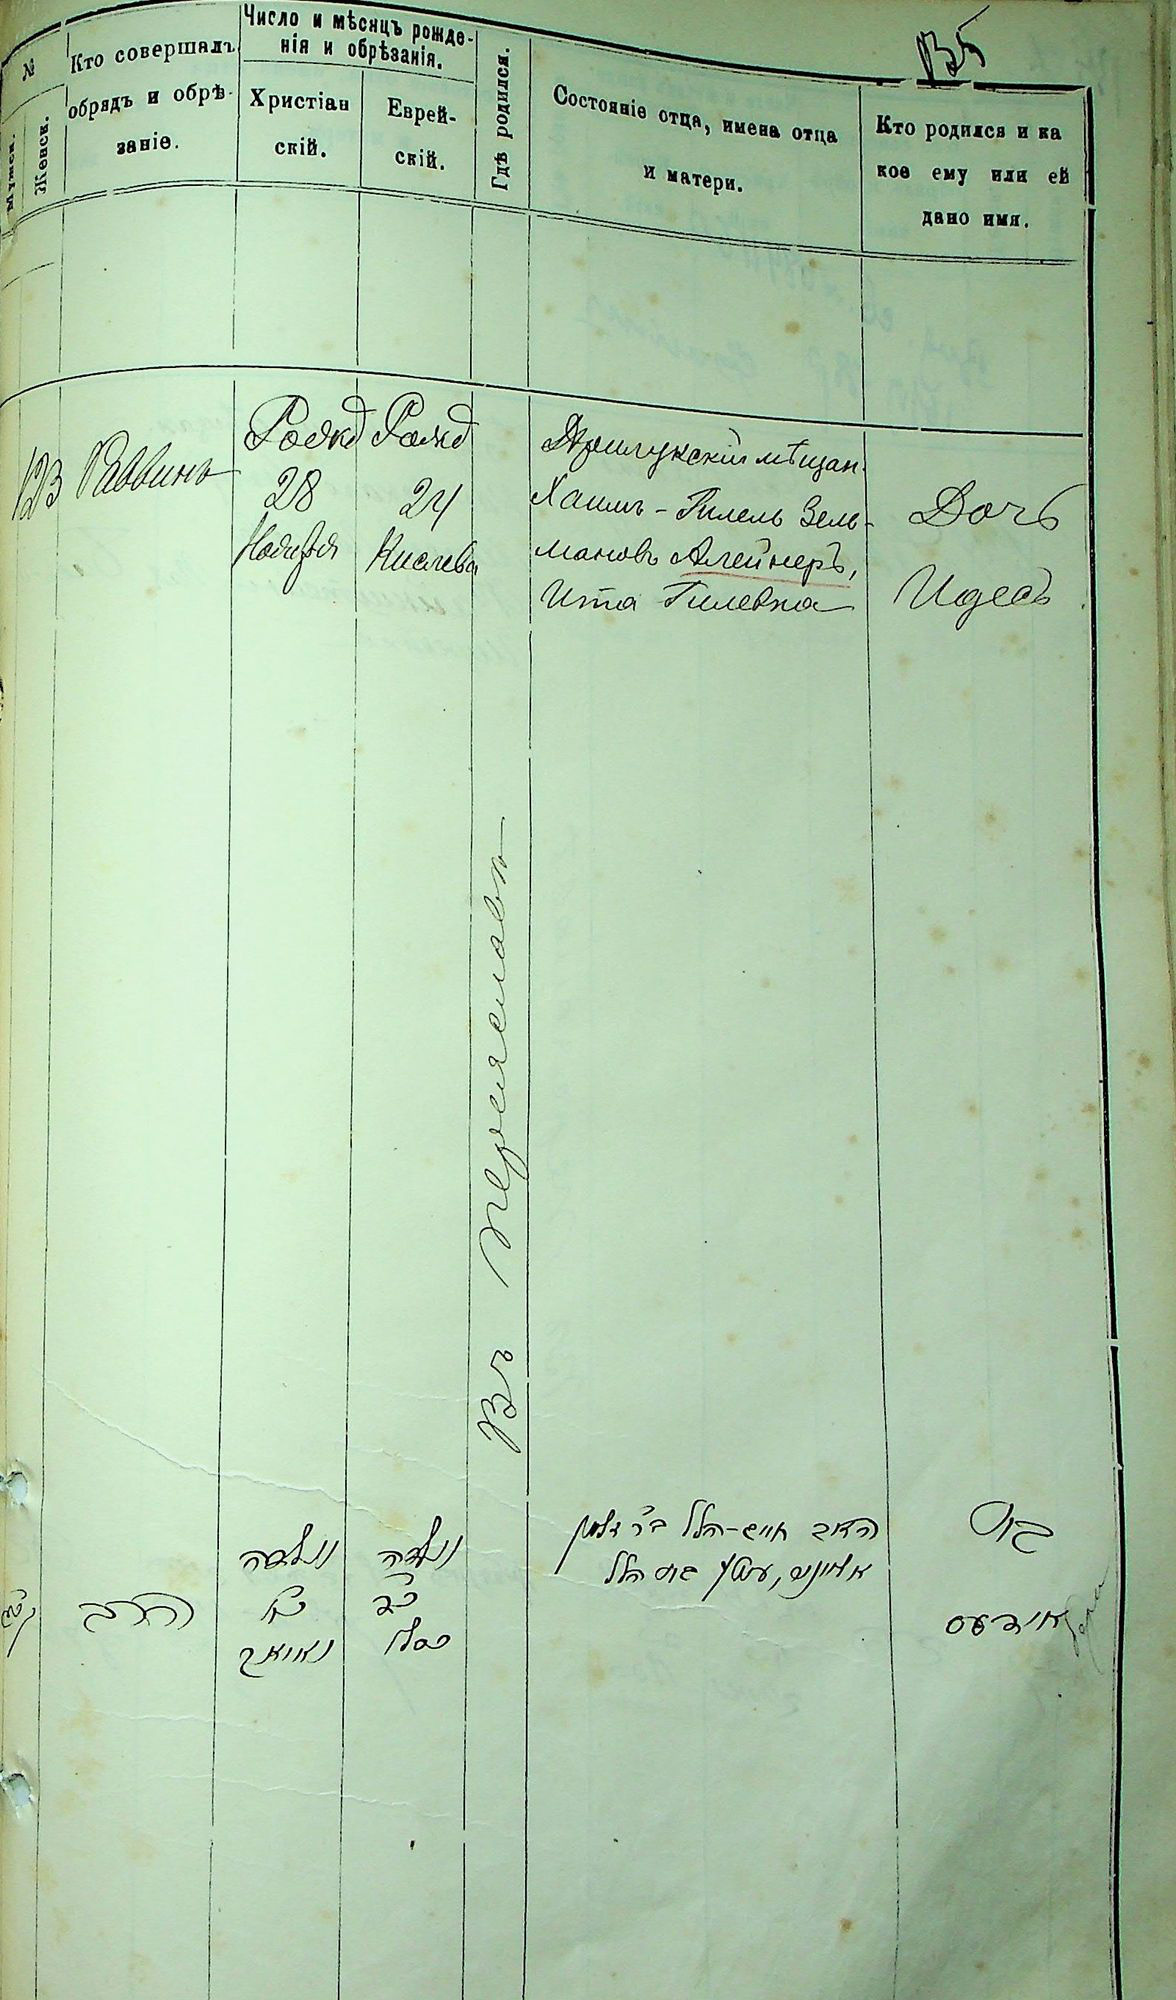 №
Мужск.
Женск.
Кто совершалъ
обрядъ и обрѣ-
заніе.
Число и мѣсяцъ рожде-
нія и обрѣзанія.
Христіан
скій.
Еврей-
скій.
Гдѣ родился.
Состояніе отца, имена отца
и матери.
Кто родился и ка
кое ему или ей
дано имя.
123
Раввинъ
Рожд
28
Ноября
Рожд
24
Кислева
Въ Переяславѣ
Прилукскій мѣщан.
Хаимъ - Гилель Зель-
мановъ Олейнеръ,
Ита Гилевна
Дочь
Идесъ
הרב
נולדה
כח
נאיאב
נולדה
כד
כסלו
חיים-הלל ב״ר זלמן
בת הלל
בת
אידעס